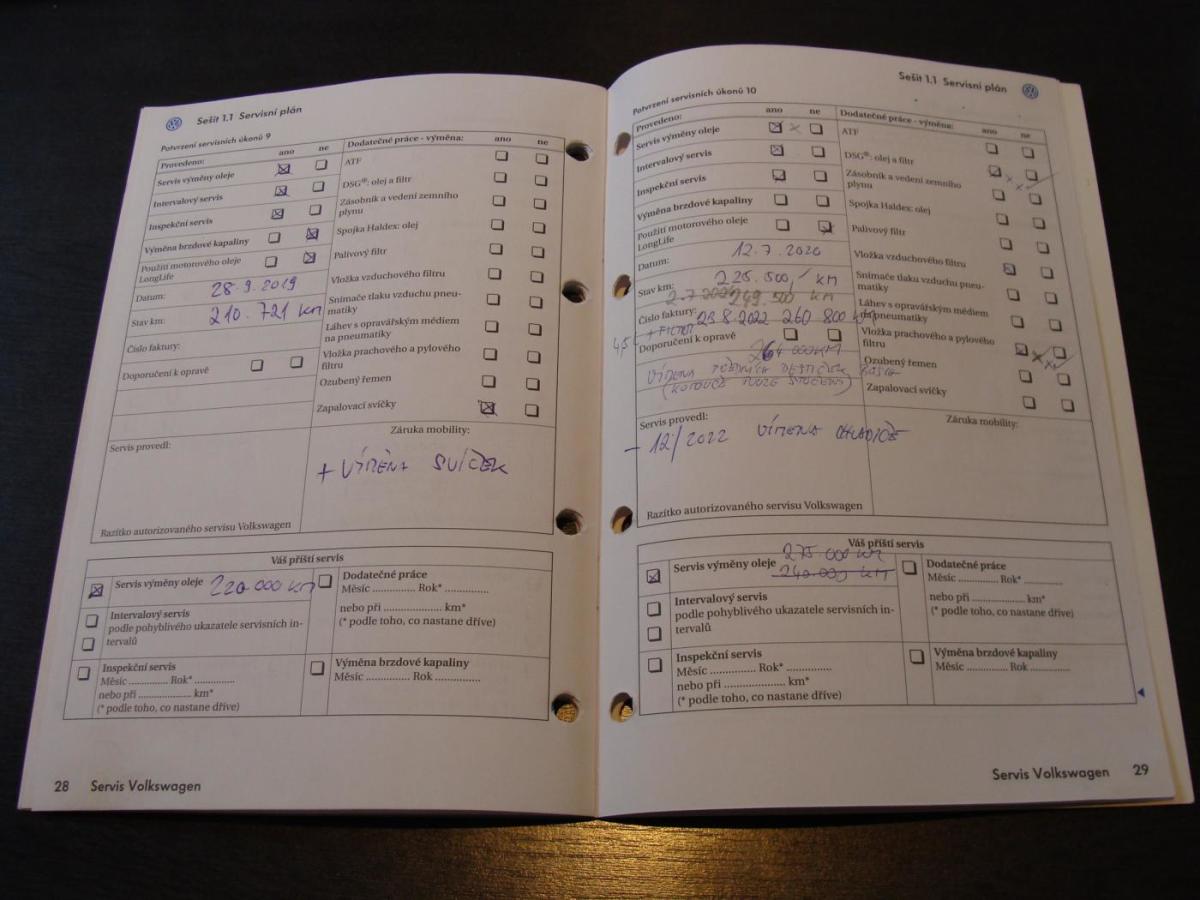 Sešit 1.1 Servisní plán
Potvrzení servisních úkonů 9
Provedeno: ano ne
Servis výměny oleje
Intervalový servis
Inspekční servis
Výměna brzdové kapaliny
Použití motorového oleje
LongLife
Datum: 28.9.2019
Stav km: 210.721 km
Číslo faktury:
Doporučení k opravě
Dodatečné práce - výměna: ano ne
ATF
DSG®: olej a filtr
Zásobník a vedení zemního
plynu
Spojka Haldex: olej
Palivový filtr
Vložka vzduchového filtru
Snímače tlaku vzduchu pneu-
matiky
Láhev s opravářským médiem
na pneumatiky
Vložka prachového a pylového
filtru
Ozubený řemen
Zapalovací svíčky
Servis provedl:
Razítko autorizovaného servisu Volkswagen
Záruka mobility:
+ VÍMĚNA SVÍČEK
Váš příští servis
Servis výměny oleje 220.000 km
Intervalový servis
podle pohyblivého ukazatele servisních in-
tervalů
Inspekční servis
Měsíc .............. Rok* ..............
nebo při .................... km*
(* podle toho, co nastane dříve)
Dodatečné práce
Měsíc .............. Rok* ..............
nebo při .................... km*
(* podle toho, co nastane dříve)
Výměna brzdové kapaliny
Měsíc .............. Rok ..............
28 Servis Volkswagen
Sešit 1.1 Servisní plán
Potvrzení servisních úkonů 10
Provedeno: ano ne
Servis výměny oleje
Intervalový servis
Inspekční servis
Výměna brzdové kapaliny
Použití motorového oleje
LongLife
Datum: 12.7.2020
Stav km: 225.500,- km
249.500 km
Číslo faktury: 23.8.2022 260 800 km
4,5 L + FILTR
Doporučení k opravě
264 000KM
VÍMĚNA
Dodatečné práce - výměna: ano ne
ATF
DSG®: olej a filtr
Zásobník a vedení zemního
plynu
Spojka Haldex: olej
Palivový filtr
Vložka vzduchového filtru
Snímače tlaku vzduchu pneu-
matiky
Láhev s opravářským médiem
na pneumatiky
Vložka prachového a pylového
filtru
Ozubený řemen
Zapalovací svíčky
Servis provedl:
Záruka mobility:
- 12/2022 VÍMĚNA CHLADIČE
Razítko autorizovaného servisu Volkswagen
Váš příští servis
275 000 km
Servis výměny oleje 240.000 km
Intervalový servis
podle pohyblivého ukazatele servisních in-
tervalů
Inspekční servis
Měsíc .............. Rok* ..............
nebo při .................... km*
(* podle toho, co nastane dříve)
Dodatečné práce
Měsíc .............. Rok* ..............
nebo při .................... km*
(* podle toho, co nastane dříve)
Výměna brzdové kapaliny
Měsíc .............. Rok ..............
Servis Volkswagen 29